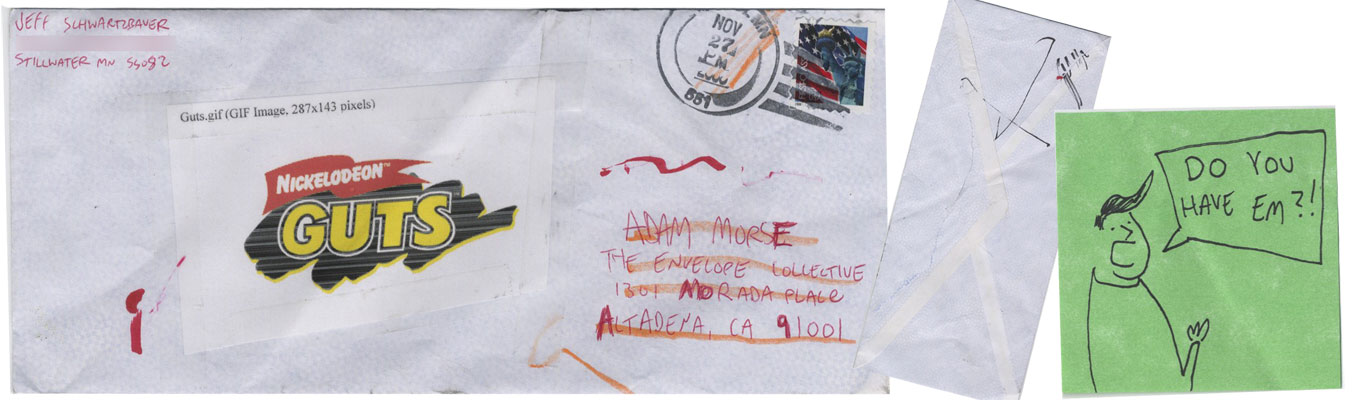 JEFF SCHWARTZBAUER
STILLWATER MN 55082
NOV
27
PM
551
Guts.gif (GIF Image, 287x143 pixels)
NICKELODEON™
GUTS
ADAM MORSE
THE ENVELOPE COLLECTIVE
1301 MORADA PLACE
ALTADENA, CA 91001
DO YOU
HAVE EM?!